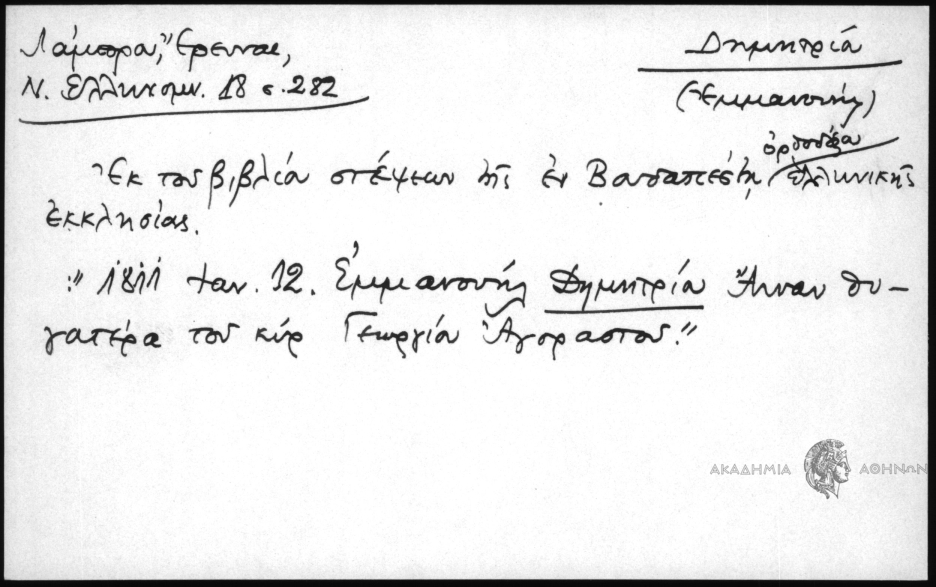 Λάμπρου, Ἔρευναι,
Ν. Ἑλληνομν. 18 σ. 282
Δημητρίου
(Ἐμμανουήλ)
Ἐκ τοῦ βιβλίου στέψεων τῆς ἐν Βουδαπέστῃ ὀρθοδόξου ἑλληνικῆς
ἐκκλησίας.
:" 1811 Ιαν. 12. Ἐμμανουήλ Δημητρίου Ἄνναν θυ-
γατέρα τοῦ κύρ Γεωργίου Ἀγοραστοῦ."
ΑΚΑΔΗΜΙΑ ΑΘΗΝΩΝ